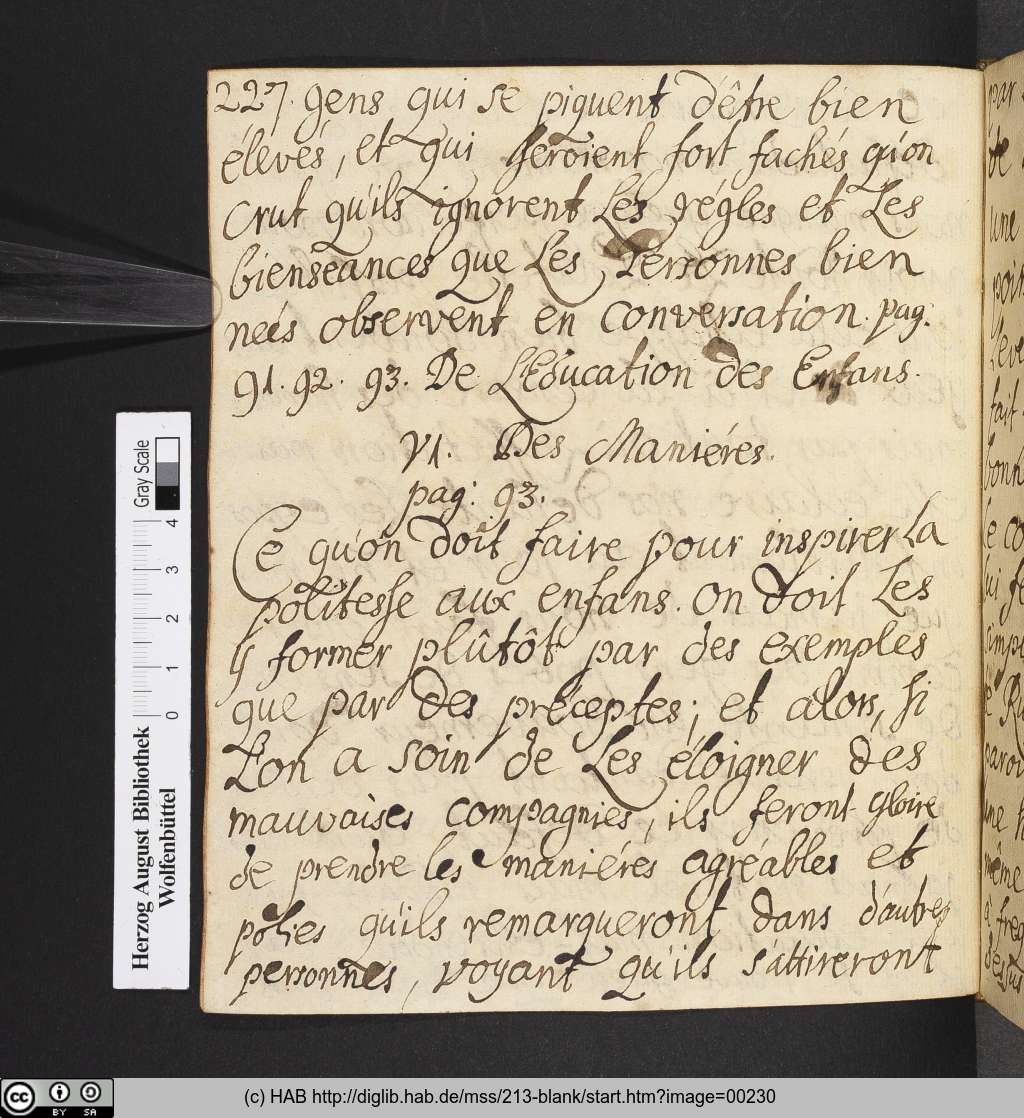 227. gens qui se piquent d'être bien
élevés, et qui seroient fort fachés qu'on
crut qu'ils ignorent Les régles et Les
bienseances que Les Personnes bien
neés observent en Conversation. pag.
91. 92. 93. De L'Education des Enfans.
VI. Des Maniéres.
pag. 93.
Ce qu'on doit faire pour inspirer La
politesse aux enfans. On doit Les
y former plûtôt par des exemples
que par des préceptes; et alors, si
L'on a soin de Les éloigner des
mauvaises compagnies, ils feront gloire
de prendre les maniérés agréables et
polies qu'ils remarqueront dans d'autres
personnes, voyant qu'ils s'attireront
Herzog August Bibliothek
Wolfenbüttel
Gray Scale
0 1 2 3 4
(c) HAB http://diglib.hab.de/mss/213-blank/start.htm?image=00230
cc BY SA